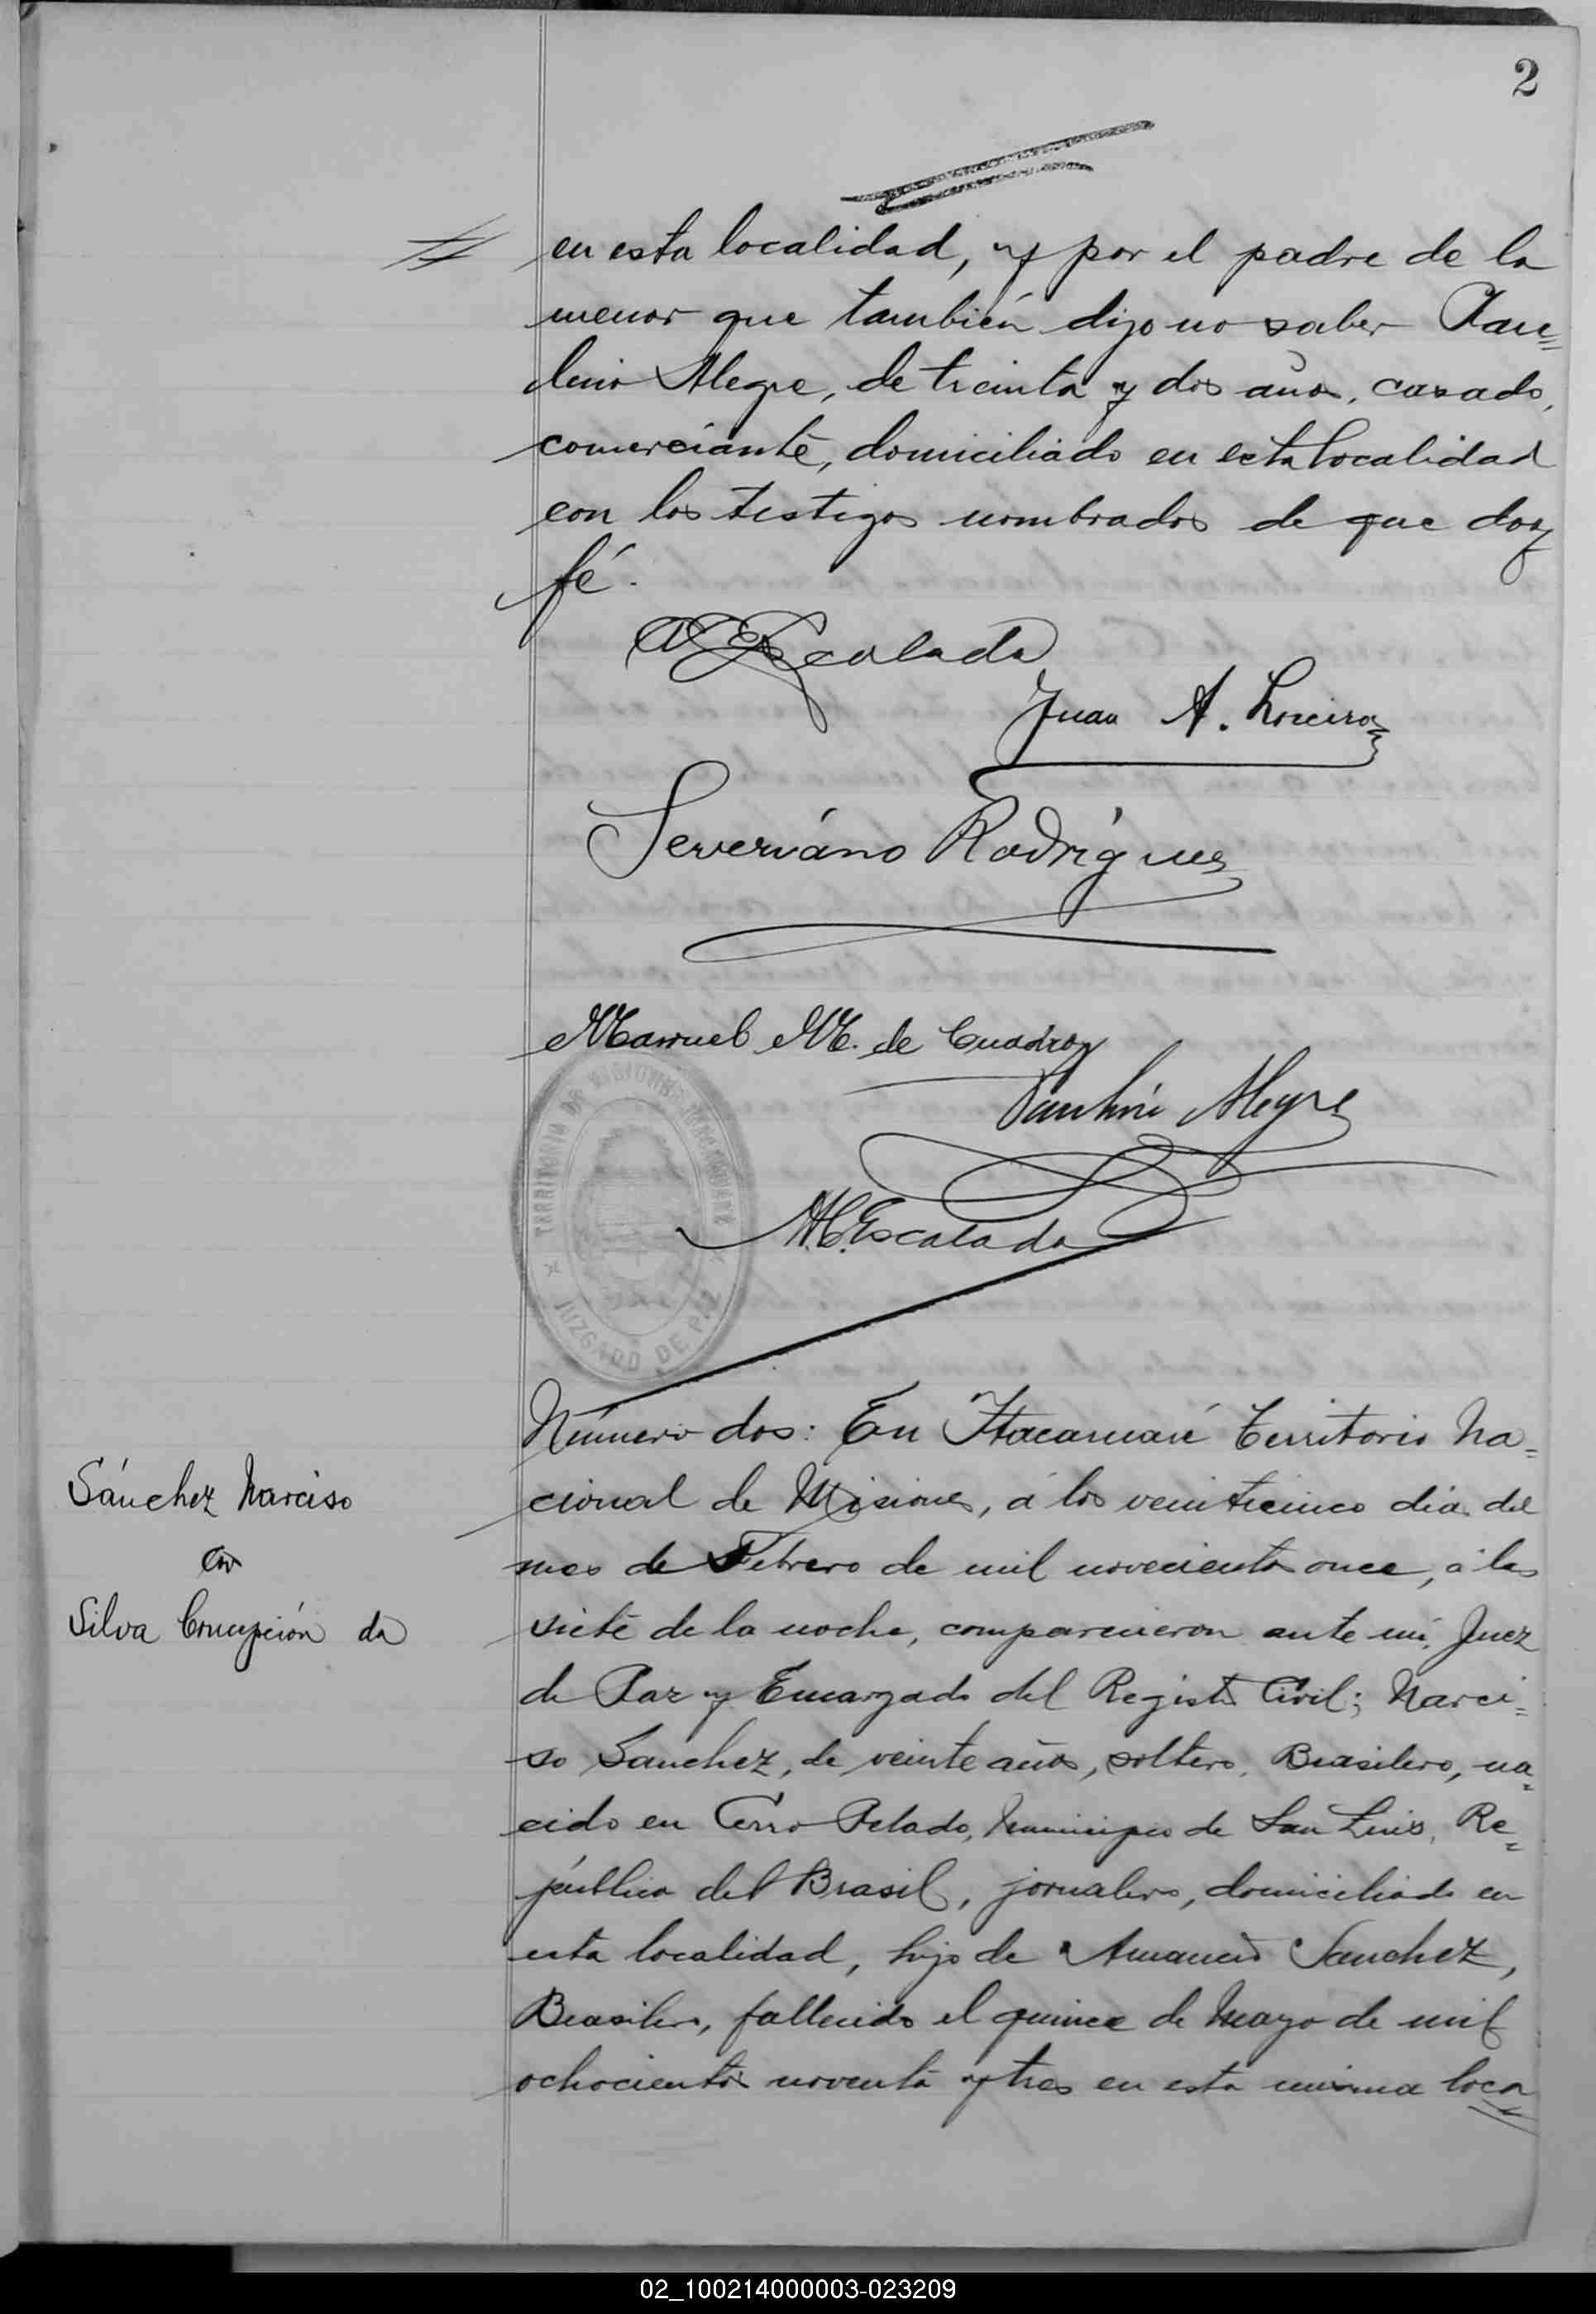 2
en esta localidad, y por el padre de la
menor que también dijo no saber Pau=
lino Alegre, de treinta y dos años, casado,
comerciante, domiciliado en esta localidad
con los testigos nombrados de que doy
fé.
Escalada
Juan A. Loreiro
Severiáno Rodrígues
Manuel M. de Cuadros
Paulino Alegre
TERRITORIO DE MISIONES
JUZGADO DE PAZ
M.C. Escalada
Número dos: En Itacaruaré Territorio Na=
cional de Misiones, á los veinticinco dias del
Sánchez Narciso
mes de Febrero de mil novecientos once, á las
con
siete de la noche, comparecieron ante mi, Juez
Silva Concepción da
de Paz y Encargado del Registro Civil; Narci=
so Sanchez, de veinte años, soltero, Brasilero, na=
cido en Cerro Pelado, Municipio de San Luis, Re=
pública del Brasil, jornalero, domiciliado en
esta localidad, hijo de Amancio Sanchez,
Brasilero, fallecido el quince de Mayo de mil
ochocientos noventa y tres en esta misma loca=
02_100214000003-023209